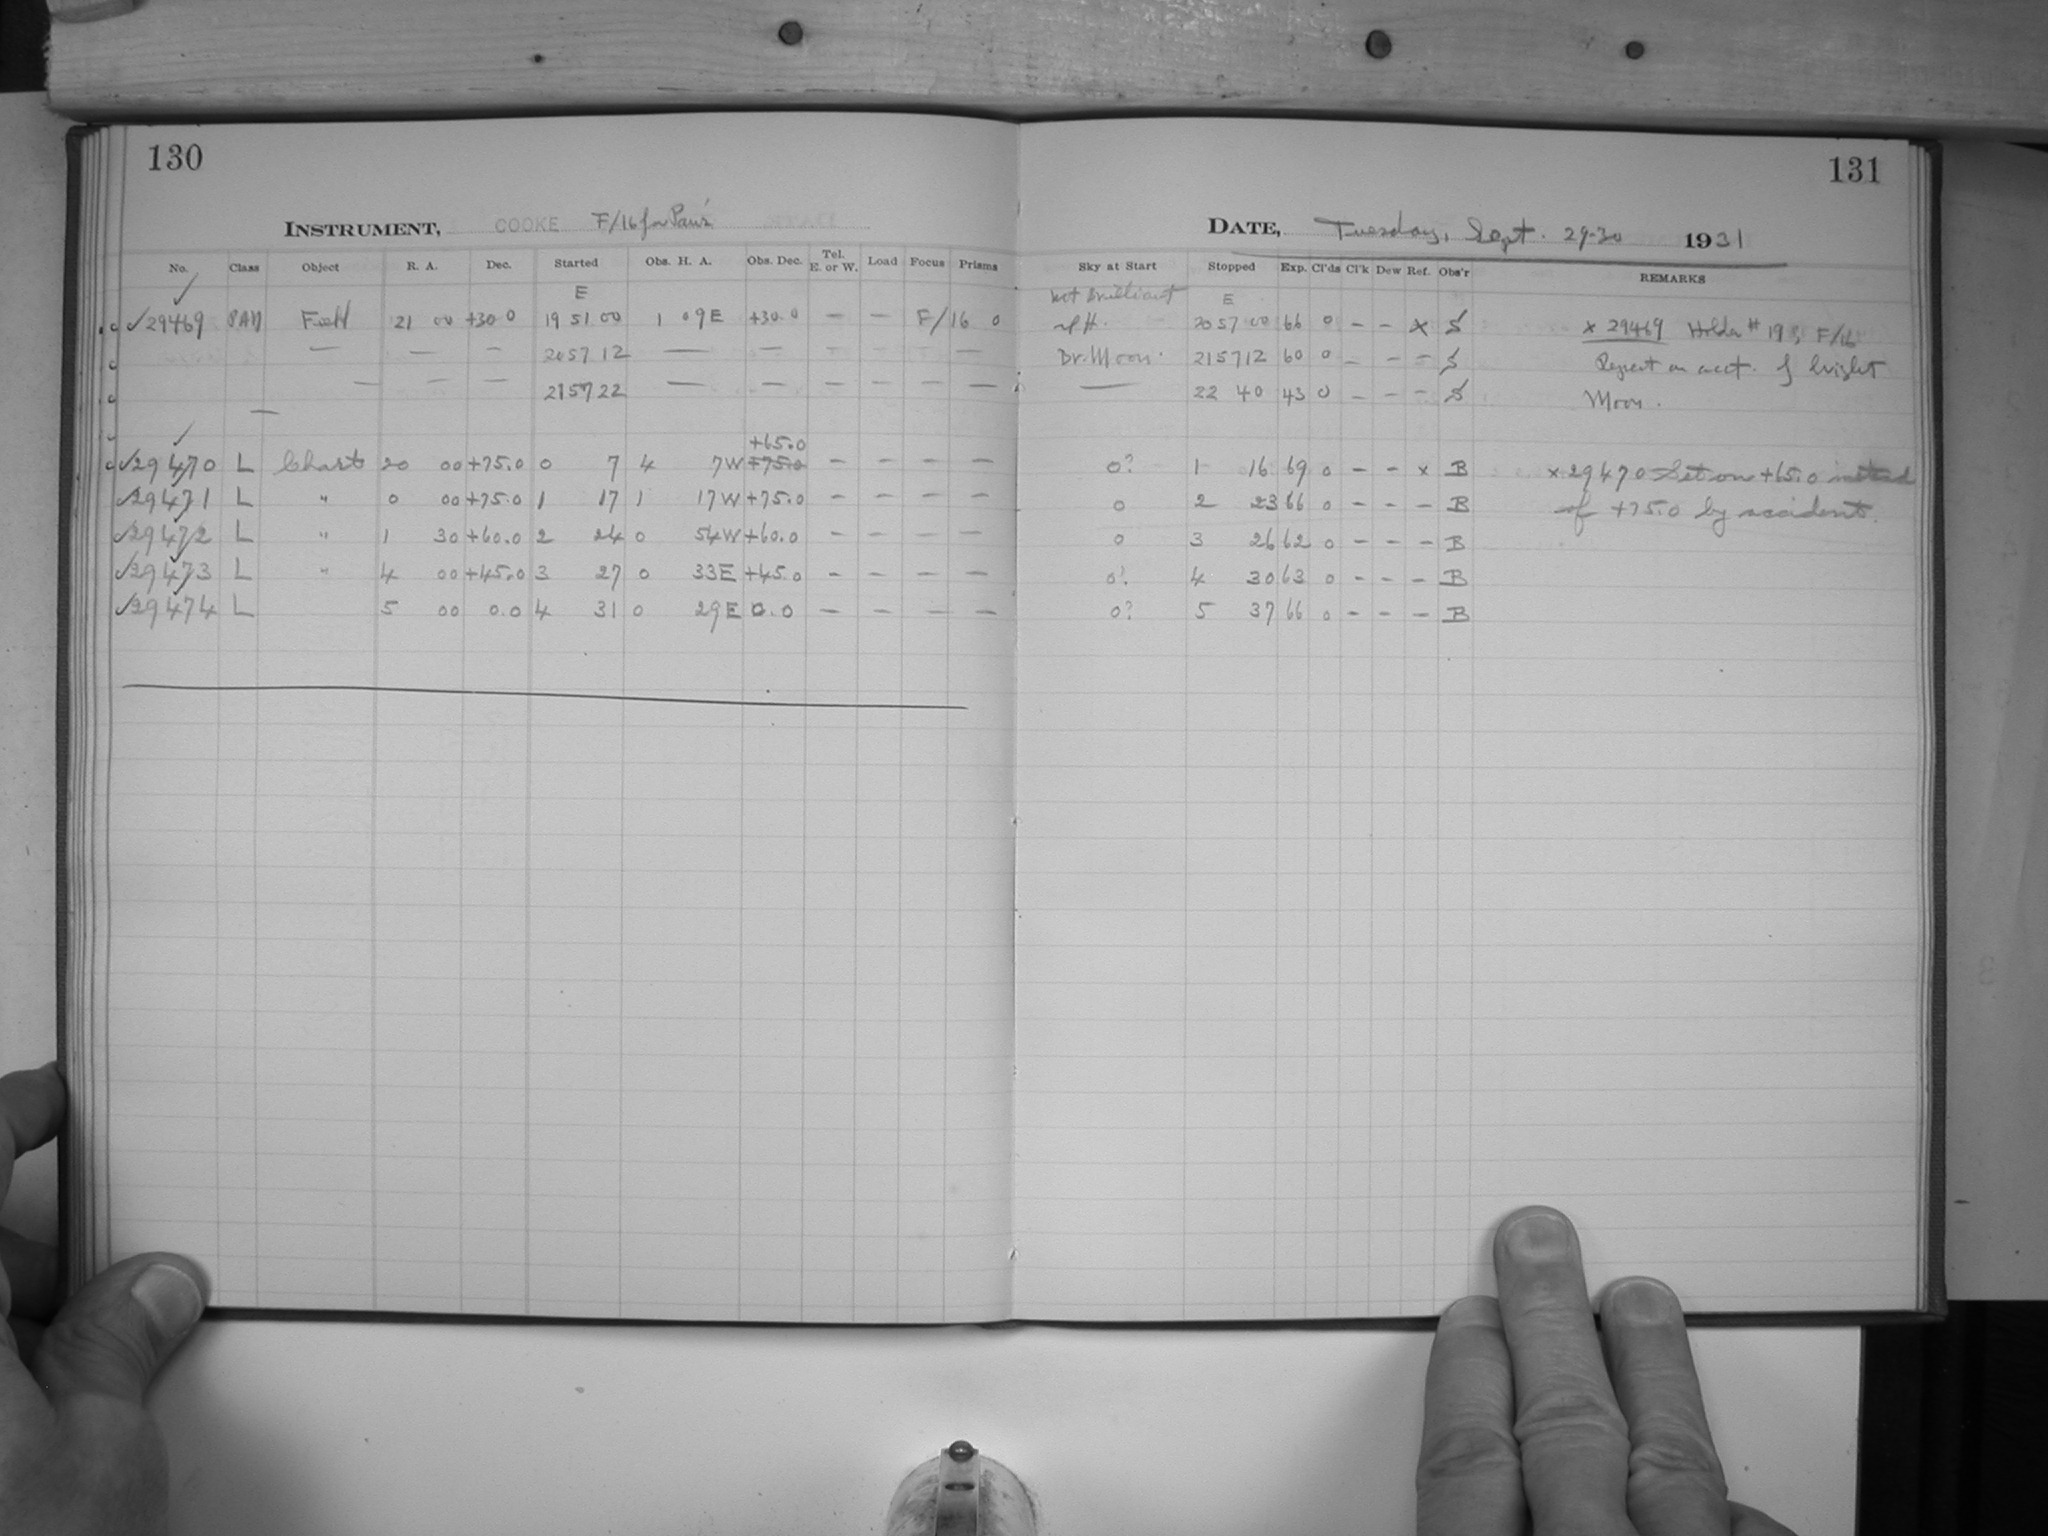 130
INSTRUMENT, COOKE F/16 for Pan's
No. Class Object R. A. Dec. Started Obs. H. A. Obs. Dec. Tel. E. or W. Load Focus Prisms
E
✓29469 PAN Field 21 00 +30 0 19 51 00 1 09E +30.0 — — F/16 0
— — — 2057 12 — — — — — —
— — — 2157 22 — — — — — —
—
+65.0
✓29470 L Chart 20 00 +75.0 0 7 4 7W +75.0 — — — —
✓29471 L " 0 00 +75.0 1 17 1 17W +75.0 — — — —
✓29472 L " 1 30 +60.0 2 24 0 54W +60.0 — — — —
✓29473 L " 4 00 +45.0 3 27 0 33E +45.0 — — — —
✓29474 L 5 00 0.0 4 31 0 29E 0.0 — — — —
131
DATE, Tuesday, Sept. 29-30 1931
Sky at Start Stopped Exp. Cl'ds Cl'k Dew Ref. Obs'r REMARKS
not Brilliant E
2057 00 66 0 – – x S x 29469 Holder # 19 F/16
Br. Moon. 215712 60 0 – – – S Repeat on acct. of bright
— 22 40 43 0 – – – S Moon.
0? 1 16 69 0 – – x B x 29470 Set on +65.0 instead
0 2 23 66 0 – – – B of +75.0 by accident.
0 3 26 62 0 – – – B
0? 4 30 63 0 – – – B
0? 5 37 66 0 – – – B